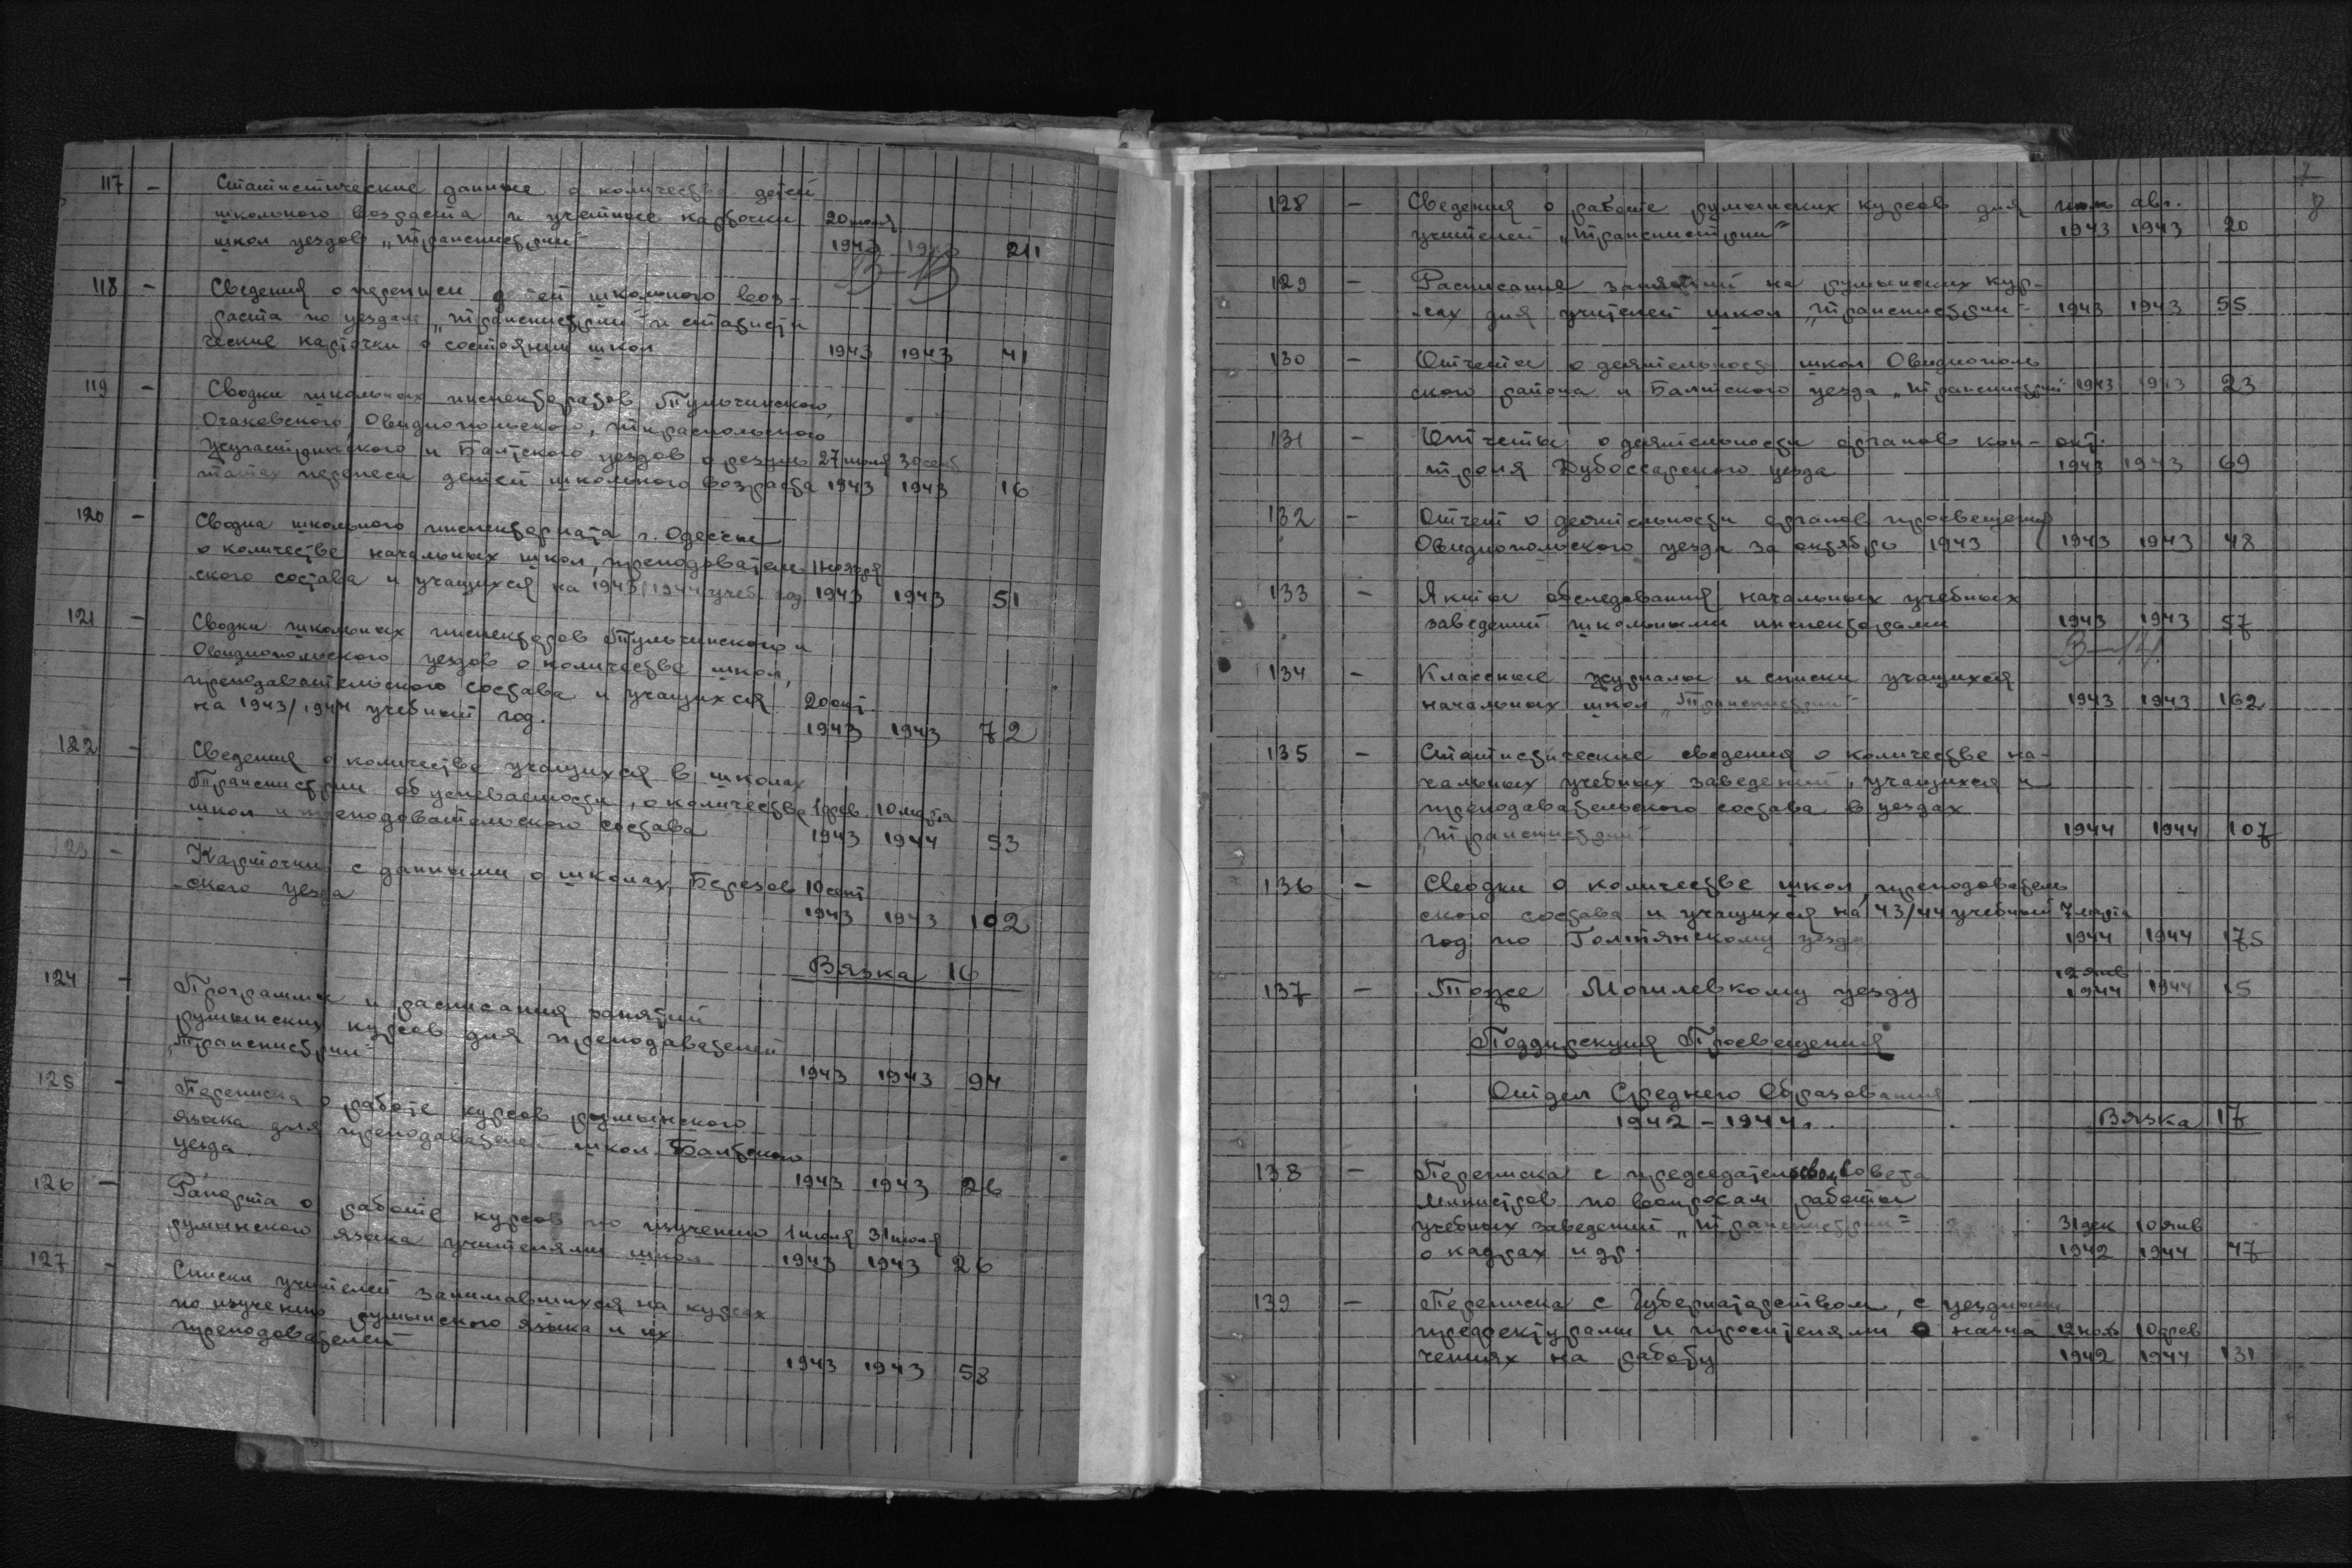 117 – Статистические данные о количестве детей
школьного возраста и учетные карточки 20 июля
школ уездов „Транснистрии" 1943 1943 211
118 – Сведения о переписи детей школьного воз-
раста по уездам „Транснистрии" и статисти
ческие карточки о состоянии школ 1943 1943 41
119 – Сводки школьных инспекторатов Тульчинского,
Очаковского, Овидиопольского, Тираспольского
Жугастринского и Балтского уездов о резуль 27 июля 30 сент
татах переписи детей школьного возраста 1943 1943 16
120 – Сводка школьного инспектората г. Одессы
о количестве начальных школ, преподаватель 1 ноября
ского состава и учащихся на 1943/1944 учеб. год. 1943 1943 51
121 – Сводки школьных инспекторов Тульчинского и
Овидиопольского уездов о количестве школ,
преподавательского состава и учащихся 20 окт.
на 1943/1944 учебный год. 1943 1943 72
122 – Сведения о количестве учащихся в школах
Транснистрии об успеваемости, о количестве 1 фев. 10 марта
школ и преподавательского состава 1943 1944 53
123 – Карточки с данными о школах Березов 10 сент
ского уезда 1943 1943 102
Вязка 16
124 – Программы и расписания занятий
румынских курсов для преподавателей
„Транснистрии" 1943 1943 94
125 – Переписка о работе курсов румынского
языка для преподавателей школ Балтского
уезда. 1943 1943 26
126 – Рапорта о работе курсов по изучению 1 июля 31 июля
румынского языка учителями школ 1943 1943 26
127 – Списки учителей занимавшихся на курсах
по изучению румынского языка и их
преподавателей 1943 1943 58
7
8
128 – Сведения о работе румынских курсов для июль авг.
учителей „Транснистрии" 1943 1943 20
129 – Расписание занятий на румынских кур-
сах для учителей школ „Транснистрии" 1943 1943 55
130 – Отчеты о деятельности школ Овидиополь
ского района и Балтского уезда „Транснистрии" 1943 1943 23
131 – Отчеты о деятельности органов кон- окт.
троля Дубоссарского уезда 1943 1943 69
132 – Отчет о деятельности органов просвещения
Овидиопольского уезда за октябрь 1943 1943 1943 48
133 – Акты обследования начальных учебных
заведений школьными инспекторами 1943 1943 57
134 – Классные журналы и списки учащихся
начальных школ „Транснистрии" 1943 1943 162
135 – Статистические сведения о количестве на-
чальных учебных заведений, учащихся и
преподавательского состава в уездах
„Транснистрии" 1944 1944 107
136 – Сводки о количестве школ, преподаватель
ского состава и учащихся на 43/44 учебный 7 марта
год по Голтянскому уезду 1944 1944 175
12 янв
137 – Тоже Могилевкому уезду 1944 1944 15
Поддирекция Просвещения
Отдел Среднего Образования
1942 – 1944 г. Вязка 17
138 – Переписка с председательством Совета
Министров по вопросам работы
учебных заведений „Транснистрии" 31 дек 10 янв
о кадрах и др. 1942 1944 47
139 – Переписка с Губернаторством, с уездными
префектурами и просителями о назна 12 нояб 10 фев
чениях на работу 1942 1944 131